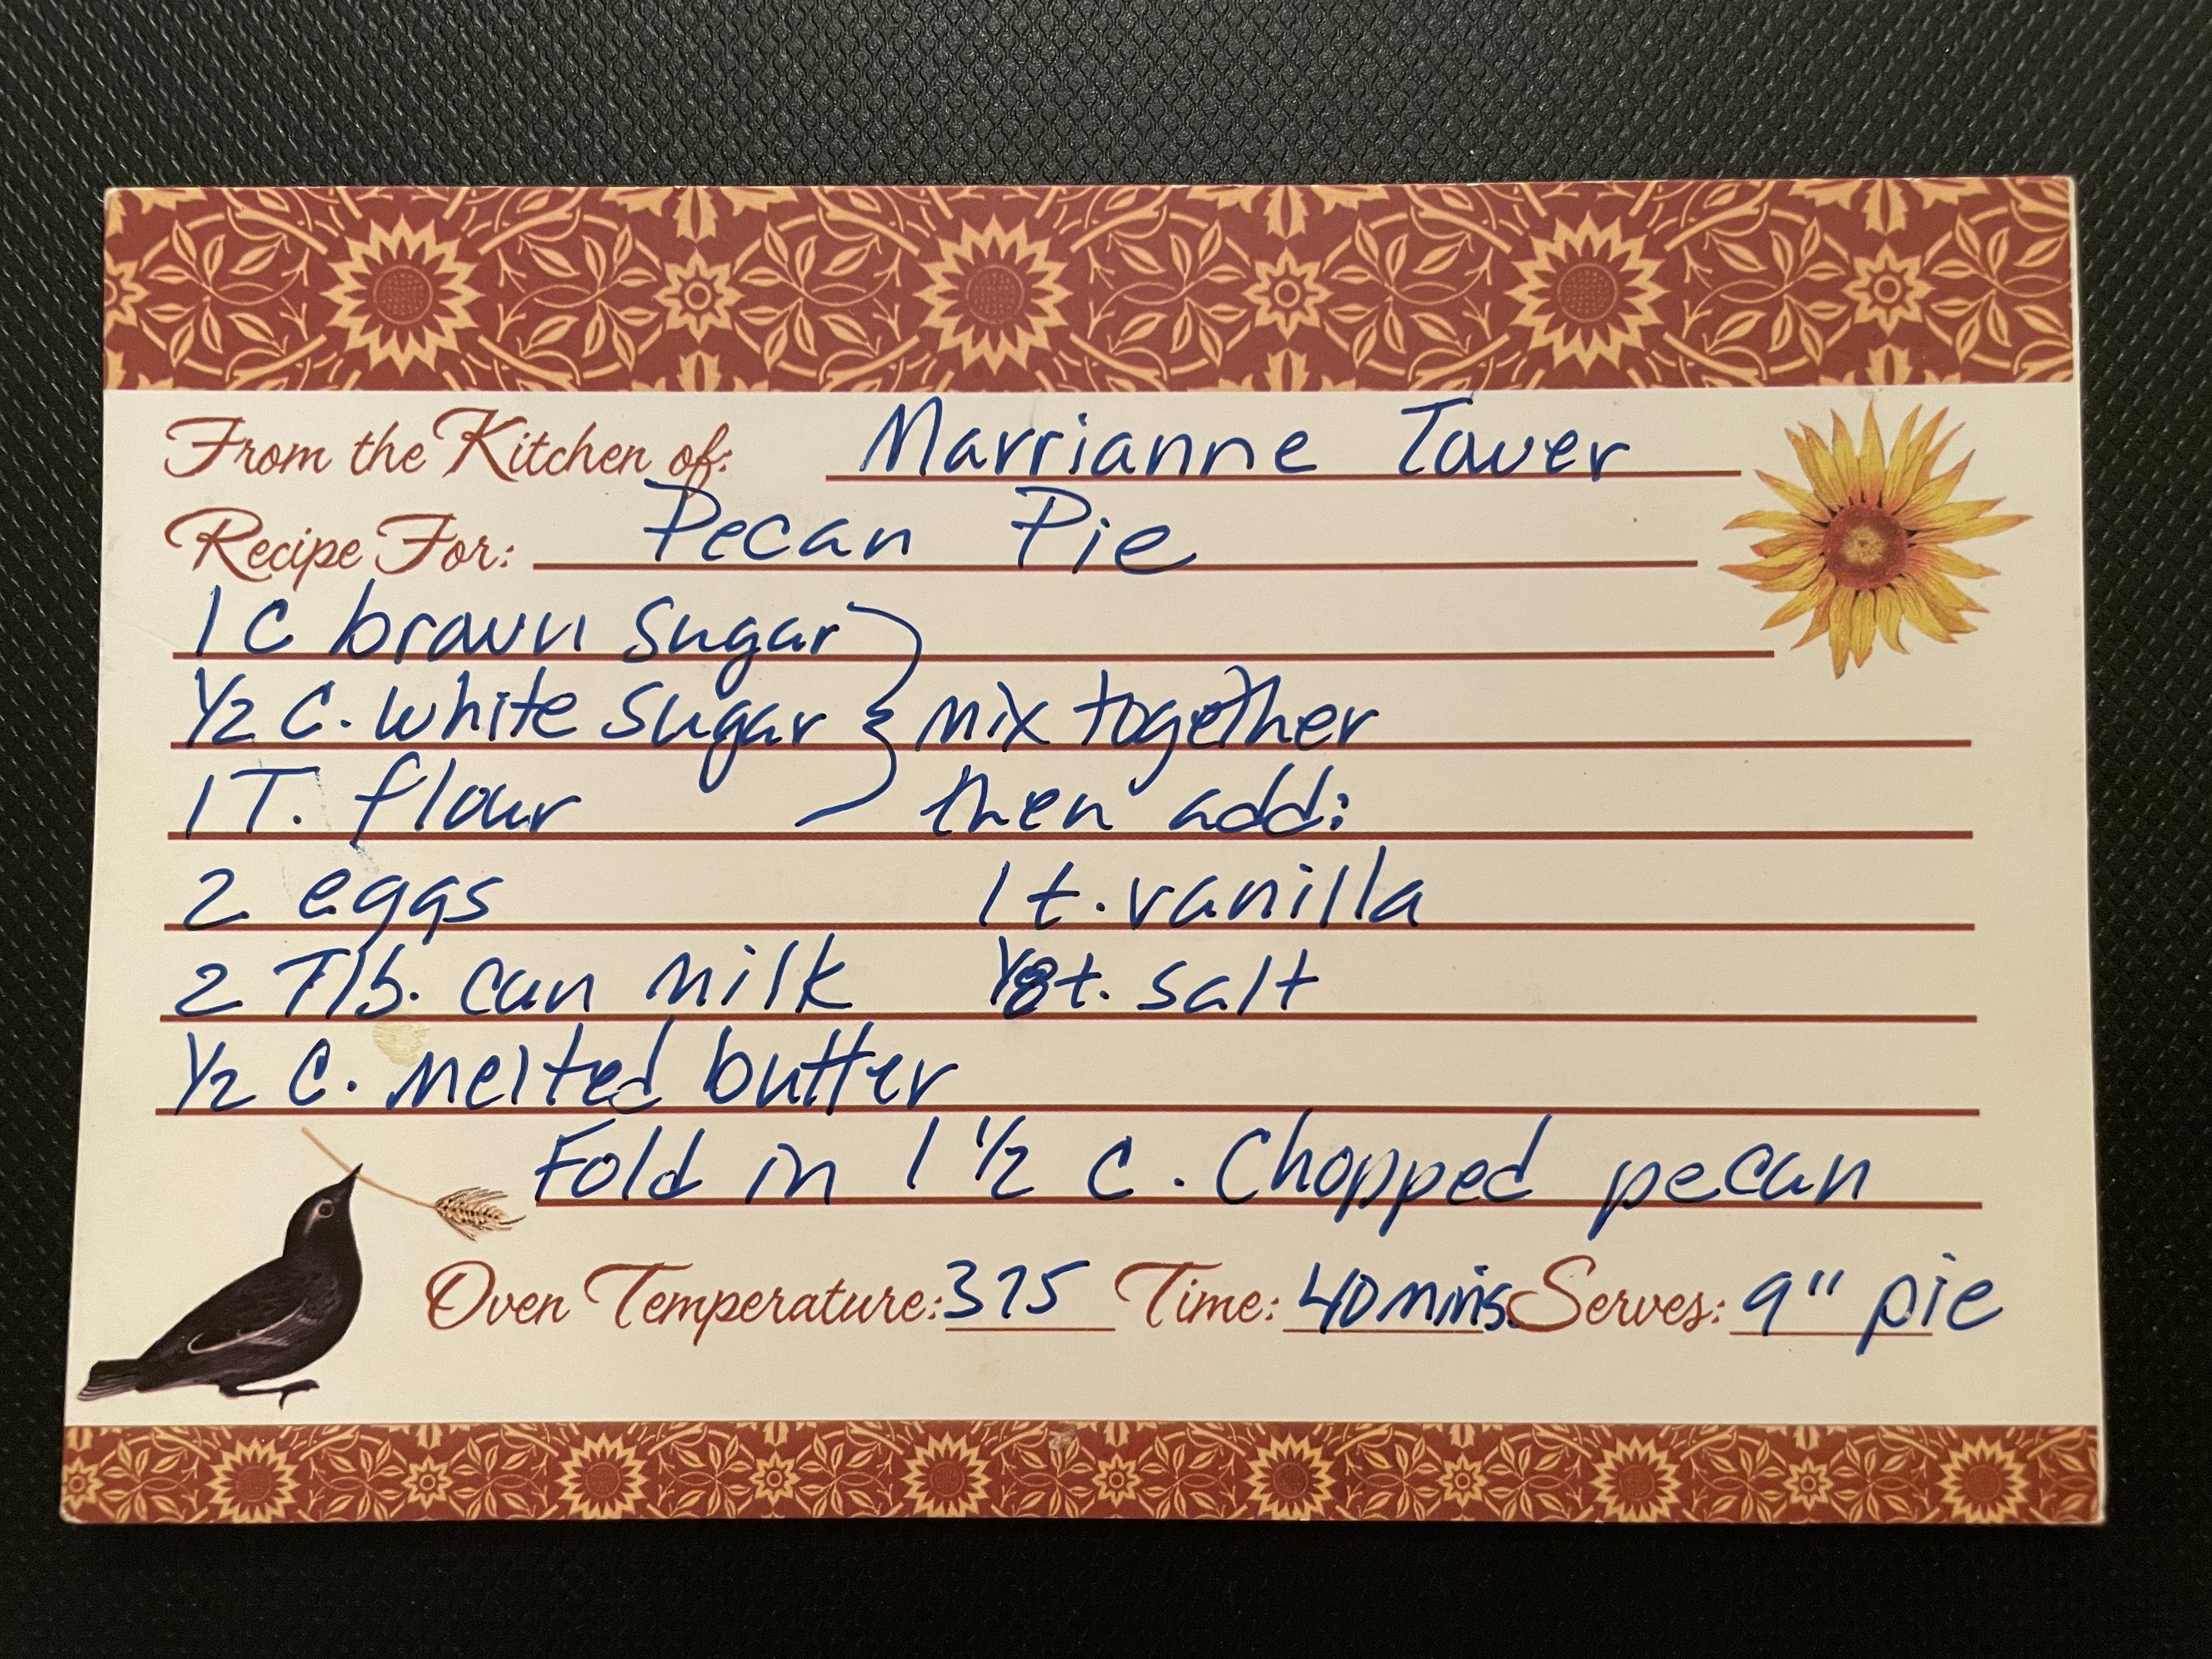 From the Kitchen of: Marrianne Tower
Recipe For: Pecan Pie
1 C brown sugar
1/2 C. white sugar } mix together
1 T. flour then add:
2 eggs 1 t. vanilla
2 Tlb. can milk 1/8 t. salt
1/2 C. melted butter
Fold in 1 1/2 C. Chopped pecan
Oven Temperature: 375 Time: 40 mins. Serves: 9" pie